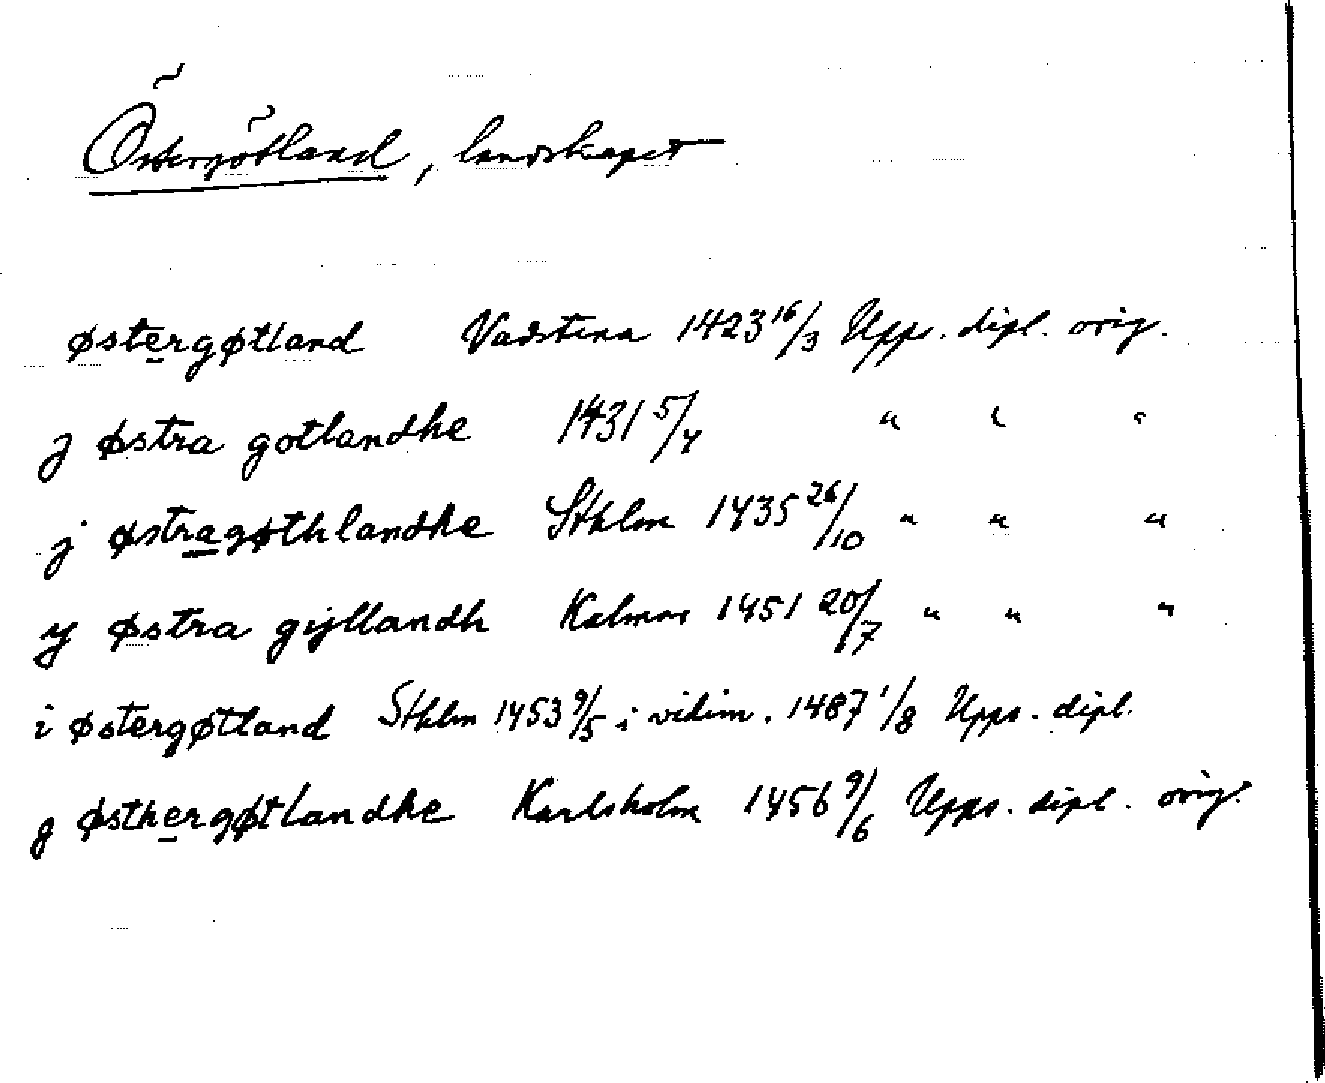 Östergötland, landskapet
østergøtland Vadstena 1423 16/3 Upps. dipl. orig.
j østra gotlandhe 1431 5/4 " " "
j østragøthlandhe Sthlm 1435 26/10 " " "
y østra gijllandh Kalmar 1451 20/7 " " "
i østergøtland Sthlm 1453 9/5 i vidim. 1487 1/8 Upps. dipl.
j østhergøtlandhe Karlsholm 1456 9/6 Upps. dipl. orig.